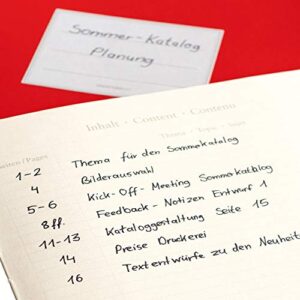 Sommer-Katalog
Planung
Inhalt · Content · Contenu
Seiten/Pages Thema · Topic · Sujet
1-2 Thema für den Sommerkatalog
4 Bilderauswahl
5-6 Kick-Off-Meeting Sommerkatalog
8ff. Feedback-Notizen Entwurf 1
11-13 Kataloggestaltung Seite 15
14 Preise Druckerei
16 Textentwürfe zu den Neuheit